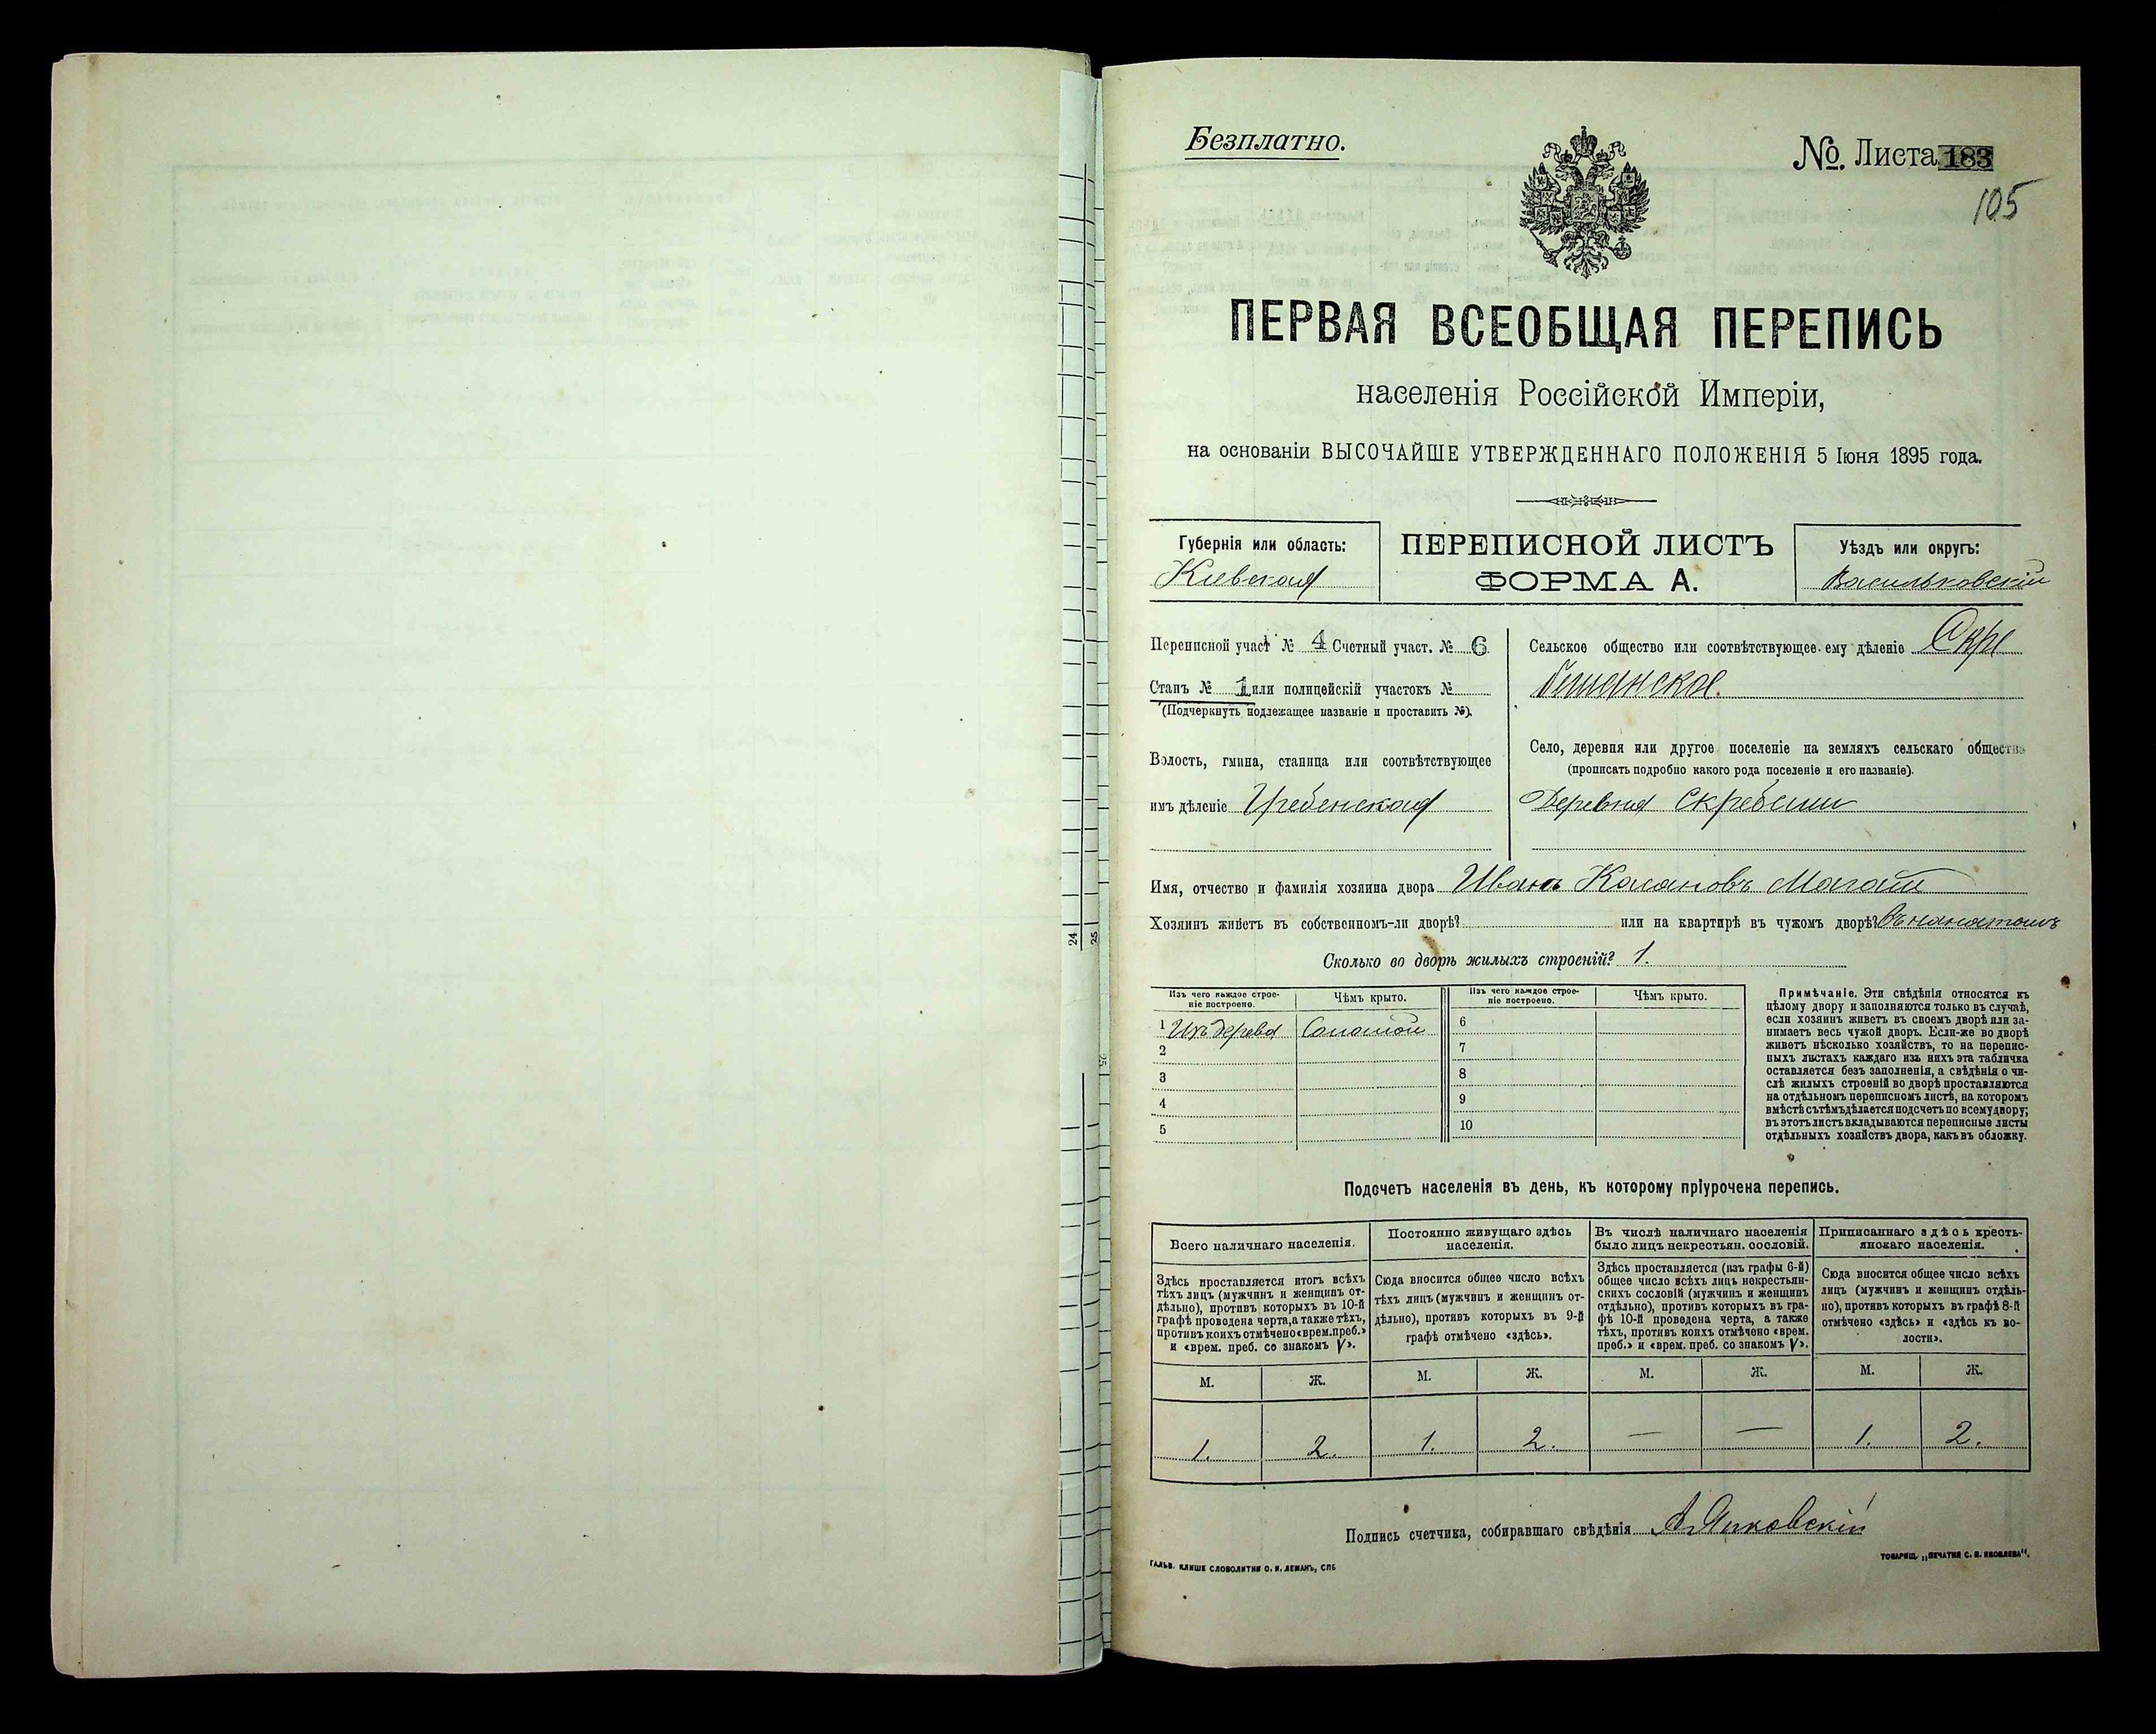 Безплатно.
№. Листа 183
105
ПЕРВАЯ ВСЕОБЩАЯ ПЕРЕПИСЬ
населенія Россійской Имперіи,
на основаніи ВЫСОЧАЙШЕ УТВЕРЖДЕННАГО ПОЛОЖЕНІЯ 5 Іюня 1895 года.
Губернія или область:
Кіевская
ПЕРЕПИСНОЙ ЛИСТЪ
ФОРМА А.
Уѣздъ или округъ:
Васильковскій
Переписной участ № 4 Счетный участ. № 6
Станъ № 1 или полицейскій участокъ №
(Подчеркнуть подлежащее названіе и проставить №).
Волость, гмина, станица или соотвѣтствующее
имъ дѣленіе Гребенская
Сельское общество или соотвѣтствующее ему дѣленіе Скре
бышанское.
Село, деревня или другое поселеніе на земляхъ сельскаго общества
(прописать подробно какого рода поселеніе и его названіе).
Деревня Скребыши
Имя, отчество и фамилія хозяина двора Иванъ
Хозяинъ живетъ въ собственномъ-ли дворѣ? или на квартирѣ въ чужомъ дворѣ?
Сколько во дворѣ жилыхъ строеній? 1.
Изъ чего каждое строе-
ніе построено.
Чѣмъ крыто.
Изъ чего каждое строе-
ніе построено.
Чѣмъ крыто.
1 Изъ дерева Соломой
2
3
4
5
6
7
8
9
10
Примѣчаніе. Эти свѣдѣнія относятся къ
цѣлому двору и заполняются только въ случаѣ,
если хозяинъ живетъ въ своемъ дворѣ или за-
нимаетъ весь чужой дворъ. Если-же во дворѣ
живетъ нѣсколько хозяйствъ, то на перепис-
ныхъ листахъ каждаго изъ нихъ эта табличка
оставляется безъ заполненія, а свѣдѣнія о чи-
слѣ жилыхъ строеній во дворѣ проставляются
на отдѣльномъ переписномъ листѣ, на которомъ
вмѣстѣ съ тѣмъ дѣлается подсчетъ по всему двору;
въ этотъ листъ вкладываются переписные листы
отдѣльныхъ хозяйствъ двора, какъ въ обложку.
Подсчетъ населенія въ день, къ которому пріурочена перепись.
Всего наличнаго населенія.
Здѣсь проставляется итогъ всѣхъ
тѣхъ лицъ (мужчинъ и женщинъ от-
дѣльно), противъ которыхъ въ 10-й
графѣ проведена черта, а также тѣхъ,
противъ коихъ отмѣчено «врем. преб.»
и «врем. преб. со знакомъ V».
М. Ж.
1. 2.
Постоянно живущаго здѣсь
населенія.
Сюда вносится общее число всѣхъ
тѣхъ лицъ (мужчинъ и женщинъ от-
дѣльно), противъ которыхъ въ 9-й
графѣ отмѣчено «здѣсь».
М. Ж.
1. 2.
Въ числѣ наличнаго населенія
было лицъ некрестьян. сословій.
Здѣсь проставляется (изъ графы 6-й)
общее число всѣхъ лицъ некрестьян-
скихъ сословій (мужчинъ и женщинъ
отдѣльно), противъ которыхъ въ гра-
фѣ 10-й проведена черта, а также
тѣхъ, противъ коихъ отмѣчено «врем.
преб.» и «врем. преб. со знакомъ V».
М. Ж.
— —
Приписаннаго здѣсь кресть-
янскаго населенія.
Сюда вносится общее число всѣхъ
лицъ (мужчинъ и женщинъ отдѣль-
но), противъ которыхъ въ графѣ 8-й
отмѣчено «здѣсь» и «здѣсь къ во-
лости».
М. Ж.
1. 2.
Подпись счетчика, собиравшаго свѣдѣнія
ГАЛЬВ. КЛИШЕ СЛОВОЛИТНИ О. И. ЛЕМАНЪ, СПБ
ТОВАРИЩ. „ПЕЧАТНЯ С. П. ЯКОВЛЕВА".
24
25